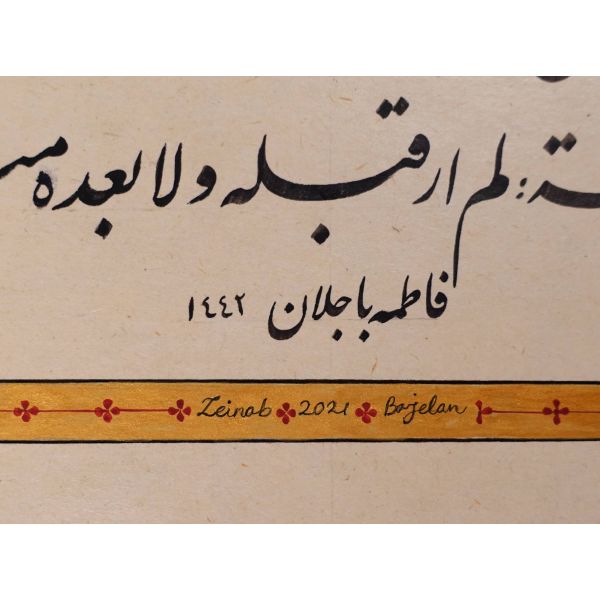 ة: لم ار قبله ولا بعده
فاطمه باجلان ١٤٤٢
Zeinab 2021 Bajelan